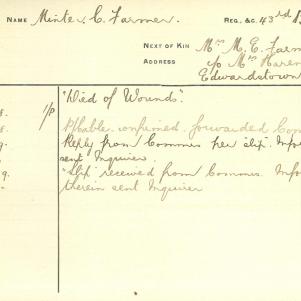 NAME Minter, C. Farmer. REG., &C. 43rd B
NEXT OF KIN Mrs M. E. Farm
ADDRESS c/o Mrs Haren
Edwardstown
8. 1/P "Died of Wounds".
8. P/Cable confirmed forwarded Com
9. Reply from Commrs per slip. Inf
sent Inquirer.
9. "Slip" received from Commrs. Info
therein sent Inquirer